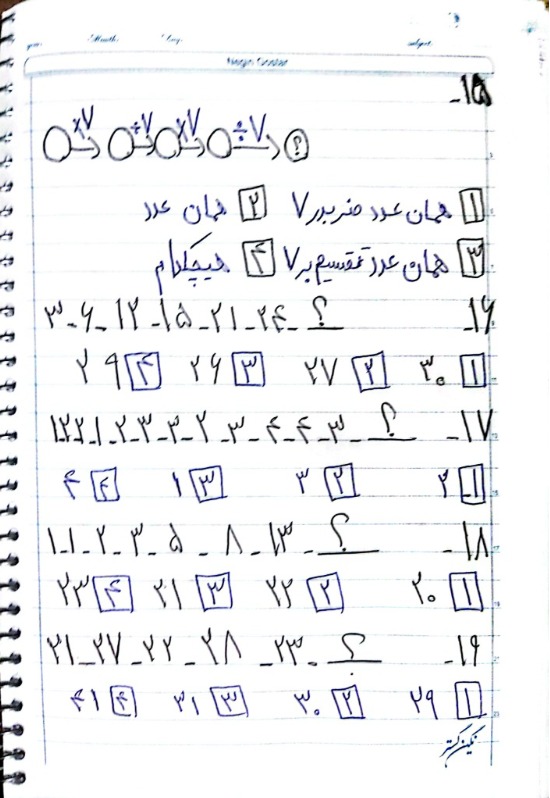 year: Month: Day: subject:
Negin Gostar
۱۵-
×۷ ÷۷ ×۷ ÷۷ ؟
۱ همان عدد ضربدر ۷ ۲ همان عدد
۳ همان عدد تقسیم بر ۷ ۴ هیچکدام
۱۶- ۳-۶-۱۲-۱۵-۲۱-۲۴-؟
۱ ۳۰ ۲ ۲۷ ۳ ۲۶ ۴ ۲۹
۱۷- ۱-۲-۲-۱-۲-۳-۳-۲-۳-۴-۴-۳-؟
۱ ۲ ۲ ۳ ۳ ۱ ۴ ۴
۱۸- ۱-۱-۲-۳-۵-۸-۱۳-؟
۱ ۲۰ ۲ ۲۲ ۳ ۲۱ ۴ ۲۳
۱۹- ۲۱-۲۷-۲۲-۲۸-۲۳-؟
۱ ۲۹ ۲ ۳۰ ۳ ۳۱ ۴ ۴۱
نگین گستر